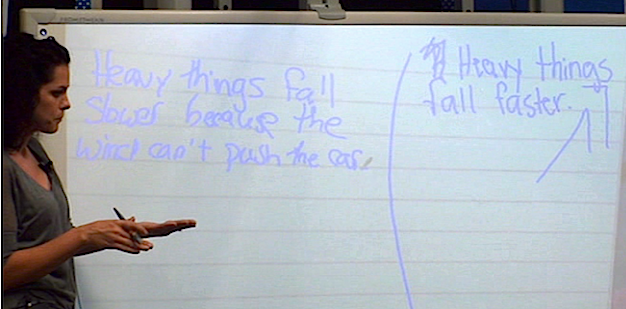 Heavy things fall
slower because the
wind can't push the car.
Heavy things
fall faster.